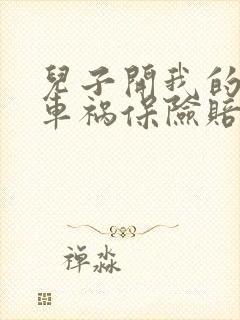 兒子開我的
車禍保險賠
禅淼